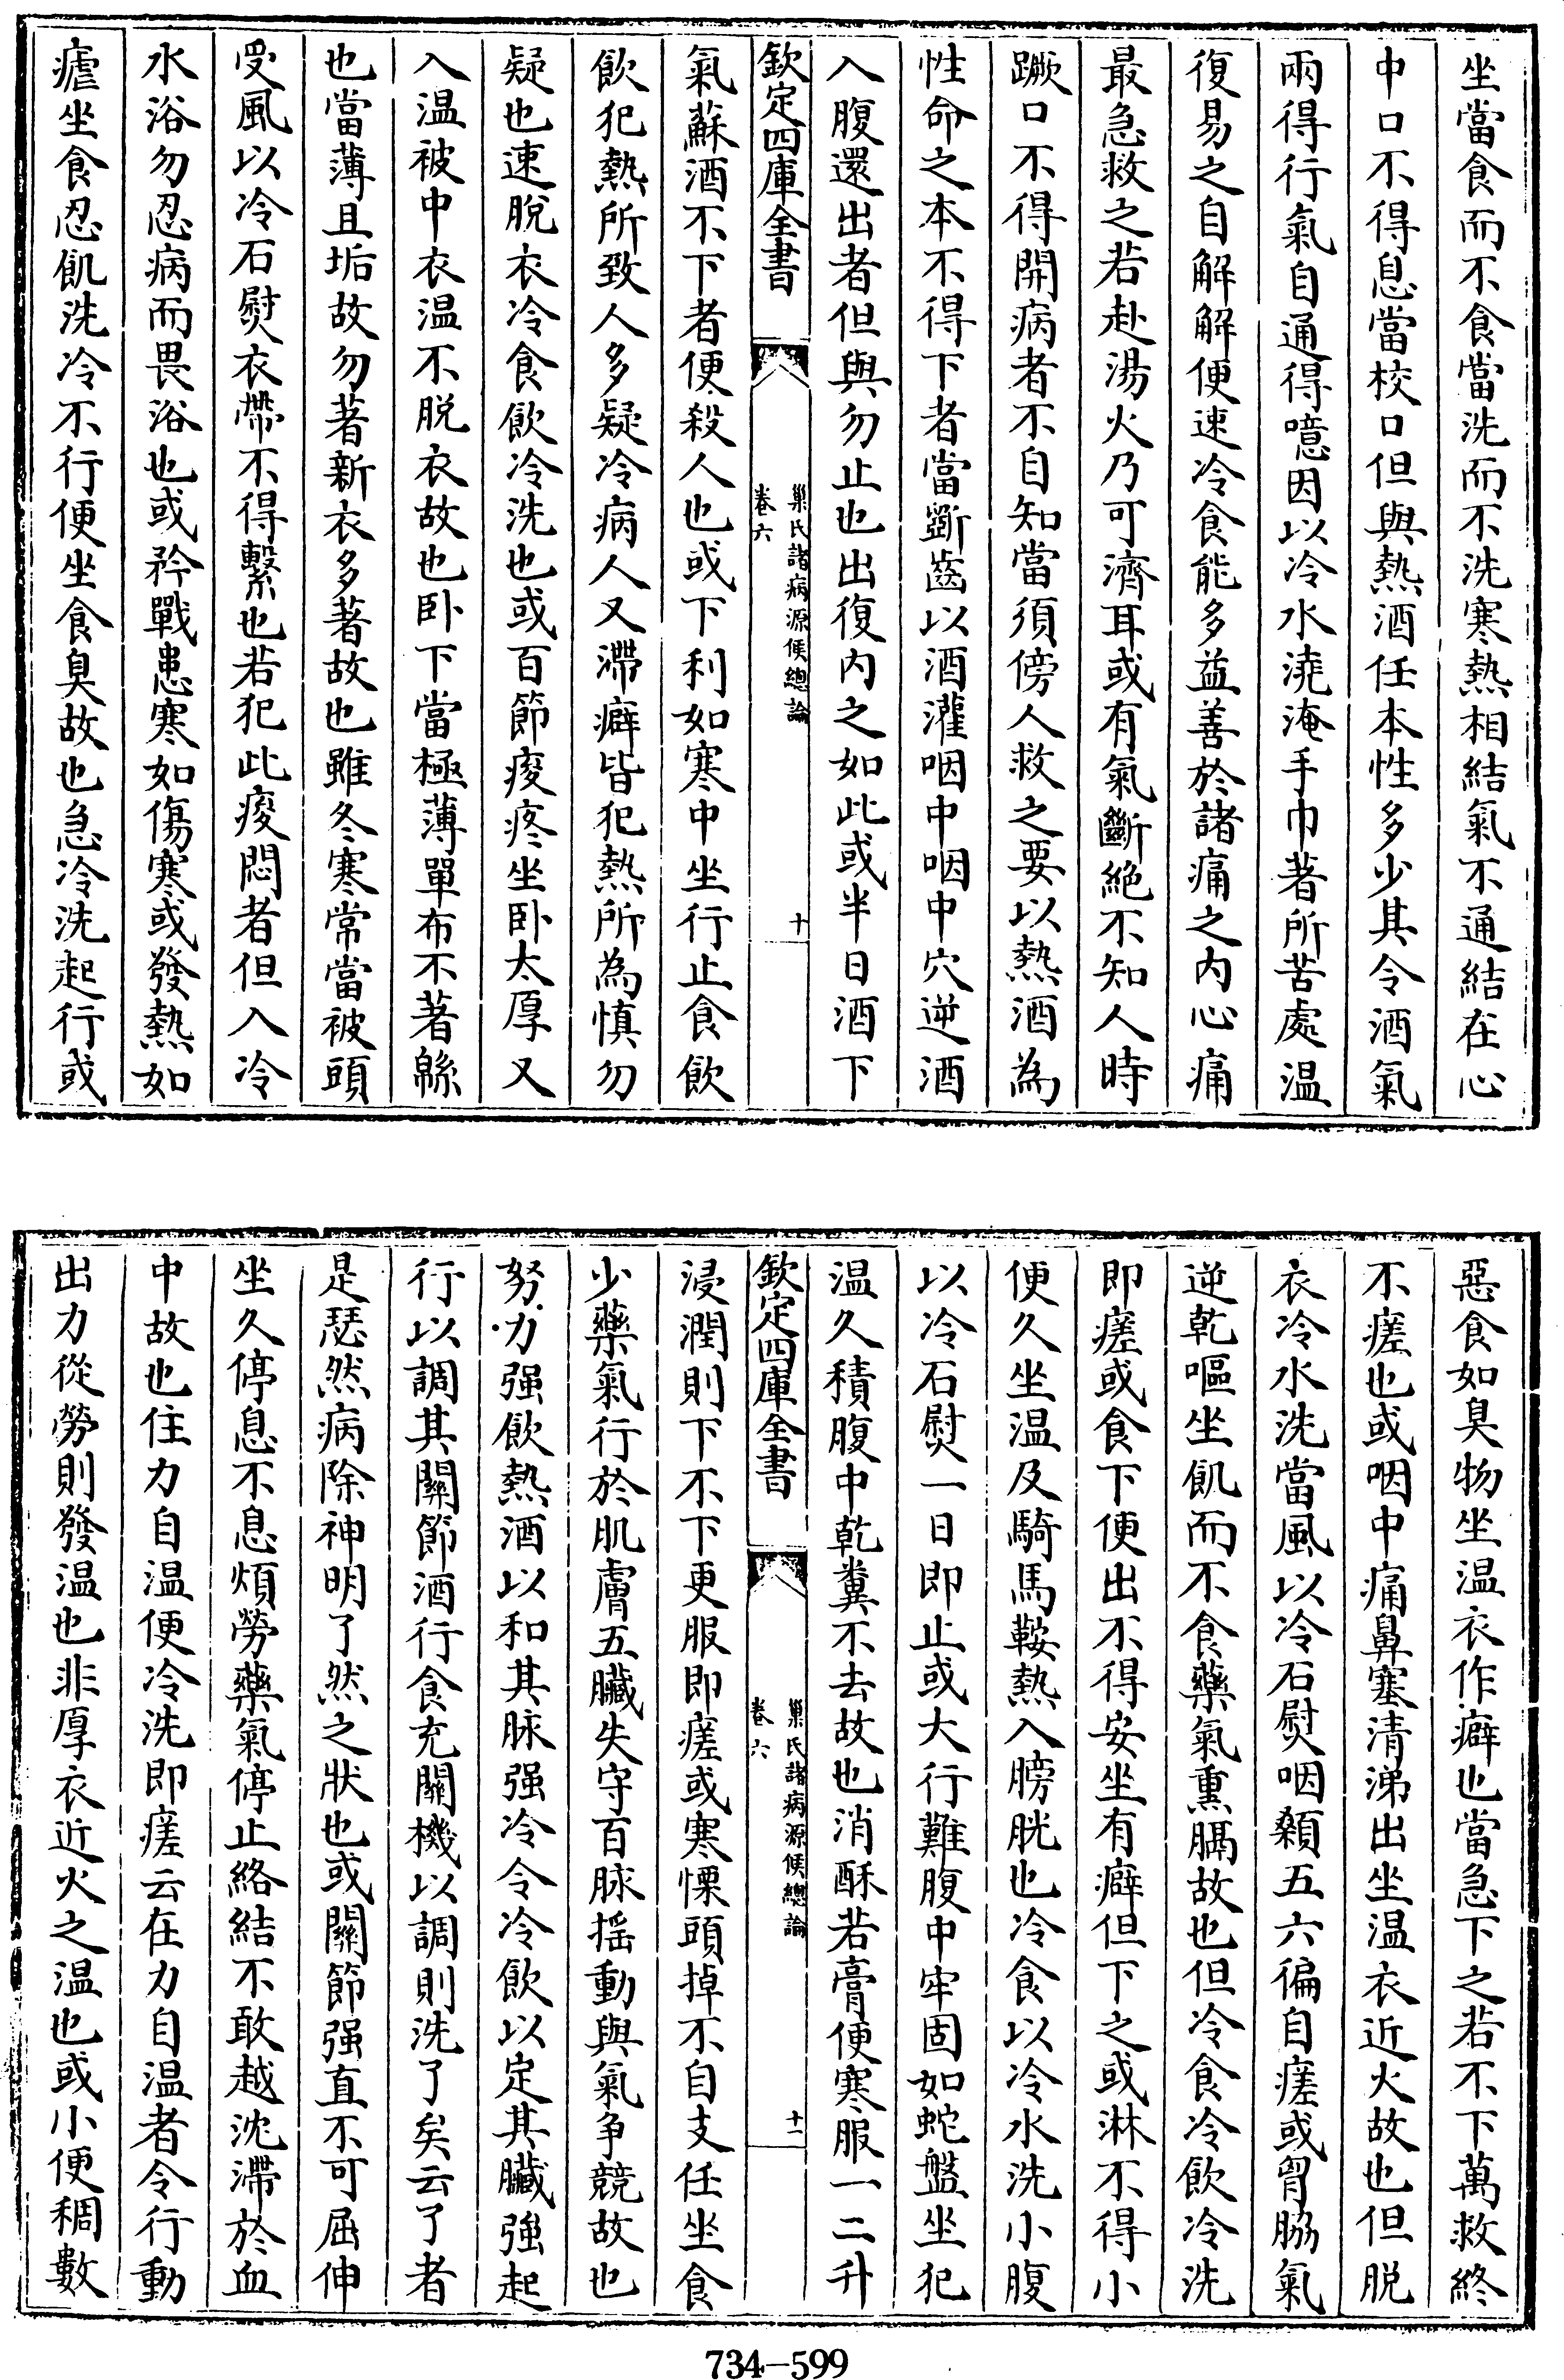 坐當食而不食當洗而不洗寒熱相結氣不通結在心
中口不得息當校口但與熱酒任本性多少其令酒氣
兩得行氣自通得噫因以冷水澆淹手巾著所苦處温
復易之自解解便速冷食能多益善於諸痛之内心痛
最急救之若赴湯火乃可濟耳或有氣斷絶不知人時
蹶口不得開病者不自知當須傍人救之要以熱酒為
性命之本不得下者當斲齒以酒灌咽中咽中穴逆酒
入腹還出者但與勿止也出復内之如此或半日酒下
欽定四庫全書
巢氏諸病源候總論
卷六
十
氣蘇酒不下者便殺人也或下利如寒中坐行止食飲
飲犯熱所致人多疑冷病人又滯癖皆犯熱所為慎勿
疑也速脫衣冷食飲冷洗也或百節痠疼坐卧太厚又
入温被中衣温不脱衣故也卧下當極薄單布不著緜
也當薄且垢故勿著新衣多著故也雖冬寒常當被頭
受風以冷石熨衣帶不得繫也若犯此痠悶者但入冷
水浴勿忍病而畏浴也或矜戰患寒如傷寒或發熱如
瘧坐食忍飢洗冷不行便坐食臭故也急冷洗起行或
惡食如臭物坐温衣作癖也當急下之若不下萬救終
不瘥也或咽中痛鼻塞清涕出坐温衣近火故也但脱
衣冷水洗當風以冷石熨咽顙五六徧自瘥或胷脇氣
逆乾嘔坐飢而不食藥氣熏膈故也但冷食冷飲冷洗
即瘥或食下便出不得安坐有癖但下之或淋不得小
便久坐温及騎馬鞍熱入膀胱也冷食以冷水洗小腹
以冷石熨一日即止或大行難腹中牢固如蛇盤坐犯
温久積腹中乾糞不去故也消酥若膏便寒服一二升
欽定四庫全書
巢氏諸病源候總論
卷六
十一
浸潤則下不下更服即瘥或寒慄頭掉不自支任坐食
少藥氣行於肌膚五臟失守百脉揺動與氣争競故也
努力强飲熱酒以和其脉强冷令冷飲以定其臟強起
行以調其關節酒行食充關機以調則洗了矣云了者
是瑟然病除神明了然之狀也或關節强直不可屈伸
坐久停息不息煩勞藥氣停止絡結不敢越沈滯於血
中故也住力自温便冷洗即瘥云在力自温者令行動
出力從勞則發温也非厚衣近火之温也或小便稠數
734—599